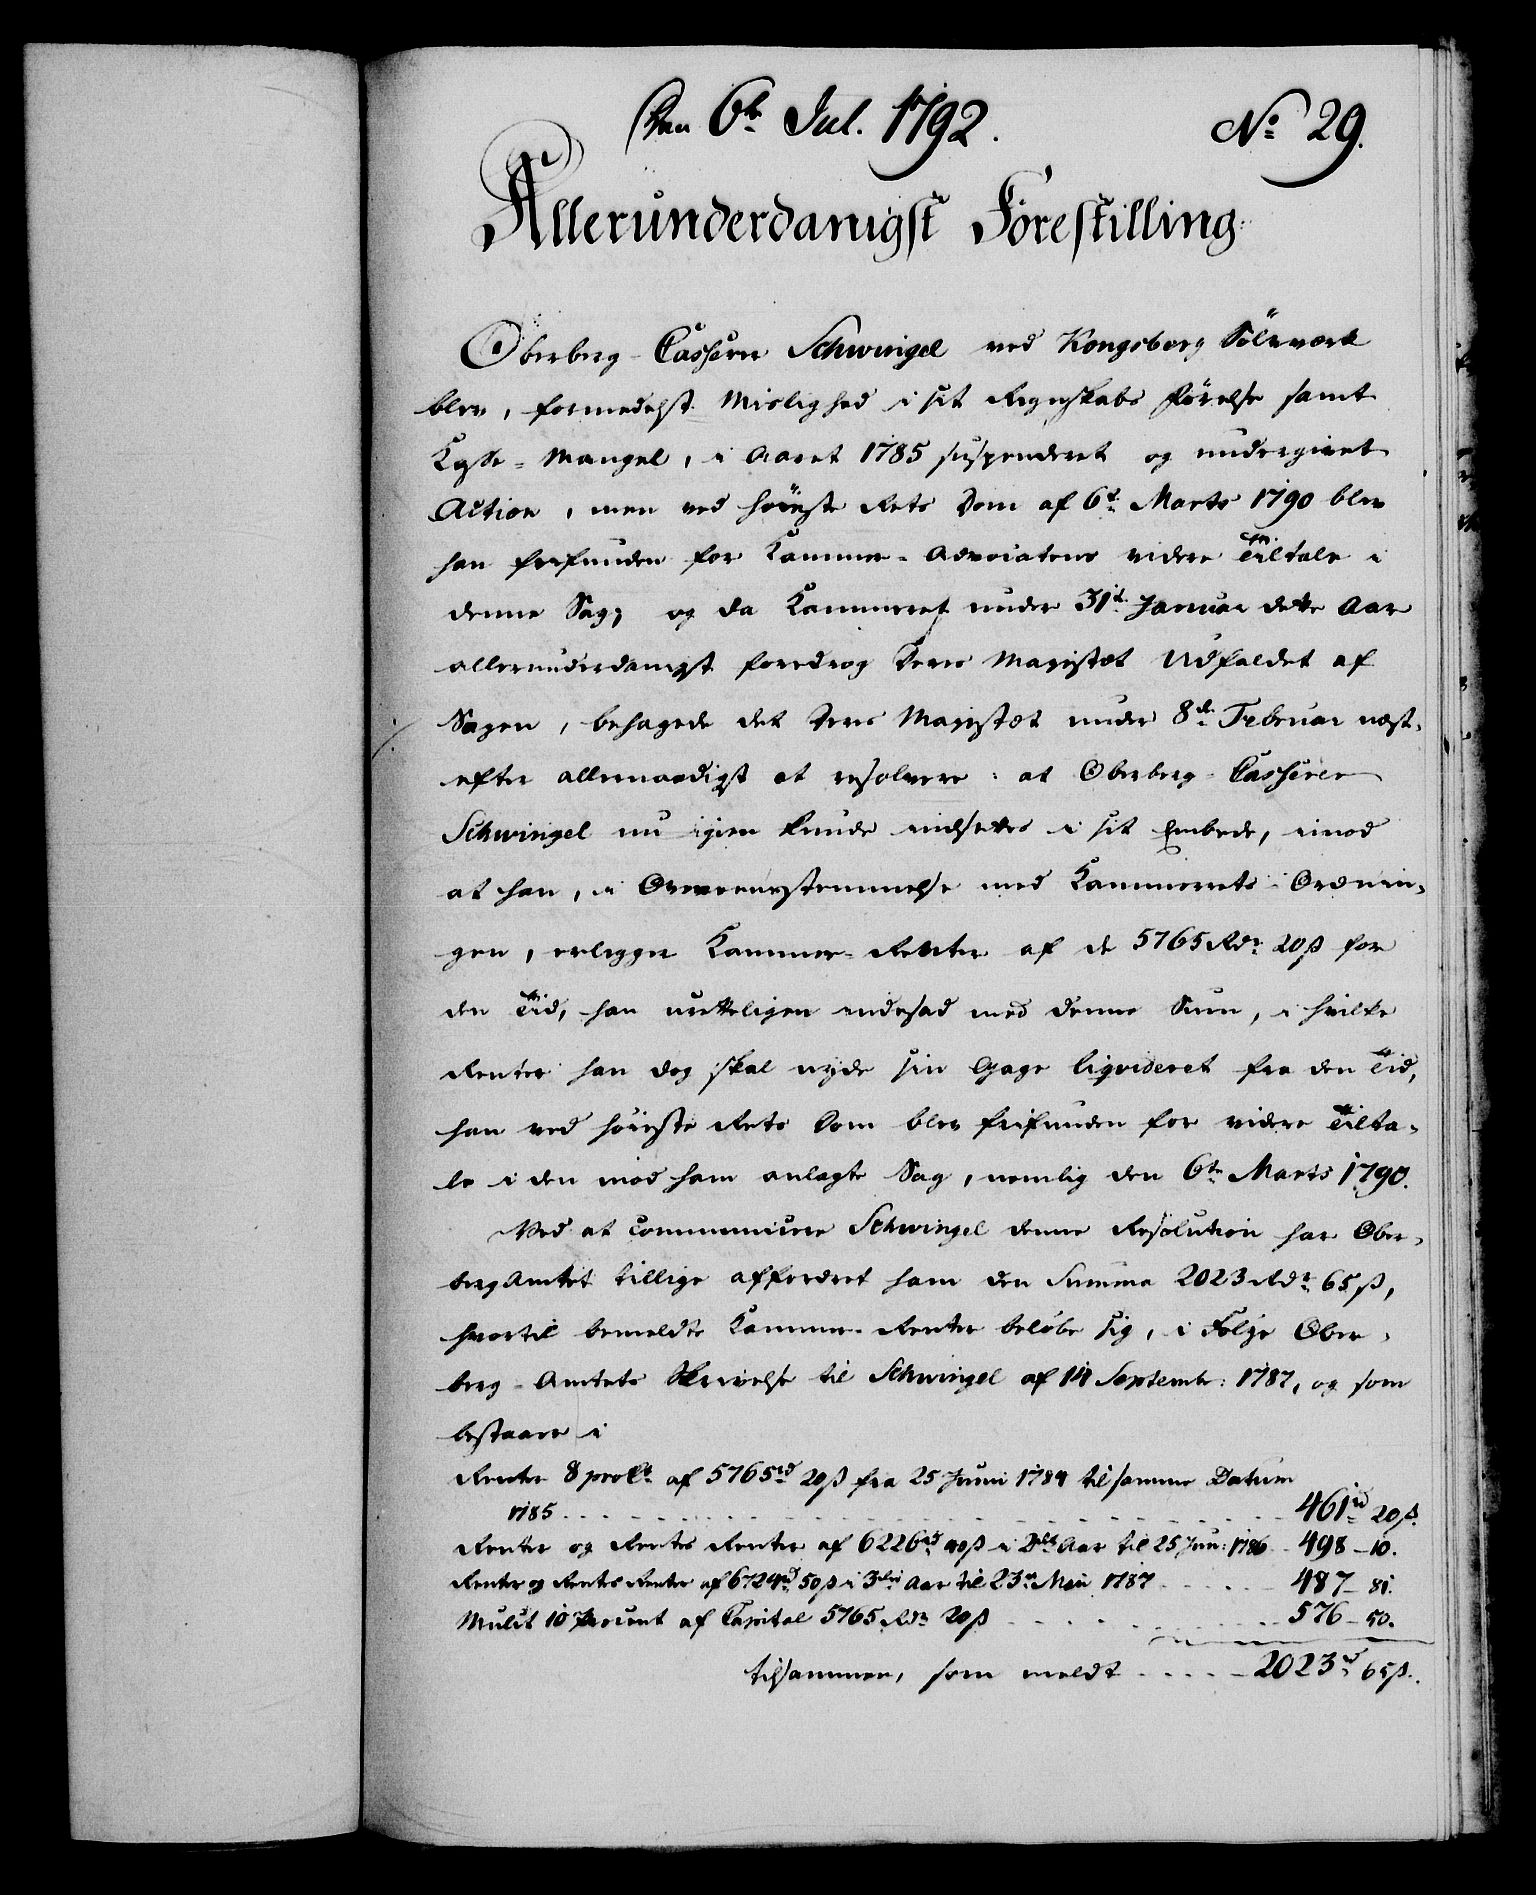 Den 6te Jul. 1792. No 29.
Allerunderdanigst Forestilling.
Oberberg-Casserer Schwingel ved Kongsberg Sölvværk
blev, formedelst Mislighed i sit Regnskabs förelse samt
Kasse-Mangel, i Aaret 1785 suspenderet og undergivet
Action, men ved höieste Rets Dom af 6te Marts 1790 blev
han frifunden for Kammer-Advocatens videre Tiltale i
denne Sag; og da Kammeret under 31te Januar dette Aar
allerunderdanigst foredrog Deres Majestæt Udfaldet af
Sagen, behagede det Deres Majestæt under 8de Februar næst-
efter allernaadigst at resolvere: at Oberberg-Casserer
Schwingel nu igien kunde indsettes i sit Embede, imod
at han, i Overeensstemmelse med Kammerets Ordnin-
gen, erlegger Kammer-Renter af de 5765 Rdr 20 ß for
den Tid, han uretteligen indesad med denne Sum, i hvilke
Renter han dog skal nyde sin Gage liqvideret fra den Tid,
han ved höieste Rets Dom blev frifunden for videre Tilta-
le i den mod ham anlagte Sag, nemlig den 6te Marts 1790.
Ved at communicere Schwingel denne Resolution har Ober-
bergAmtet tillige affordret ham den Summa 2023 Rdr 65 ß,
hvortil bemeldte Kammer-Renter beløbe sig, i Følge Ober-
berg-Amtets Skrivelse til Schwingel af 14 Septembr: 1787, og som
bestaaer i
Renter 8 proCt af 5765 rd 20 ß fra 25 Junii 1784 til samme Datum
1785 . . . . 461 rd 20 ß.
Renter og Rentes Renter af 6226 rd 40 ß i 2det Aar til 25 Jun: 1786 . . 498 - 10.
Renter og Rentes Renter af 6724 rd 50 ß i 3die Aar til 23de Maii 1787 . . . . 487 - 81.
Mulct 10 procent af Capital 5765 Rdr 20 ß . . . . 576 - 50.
tilsammen, som meldt . . . . 2023 rd 65 ß.